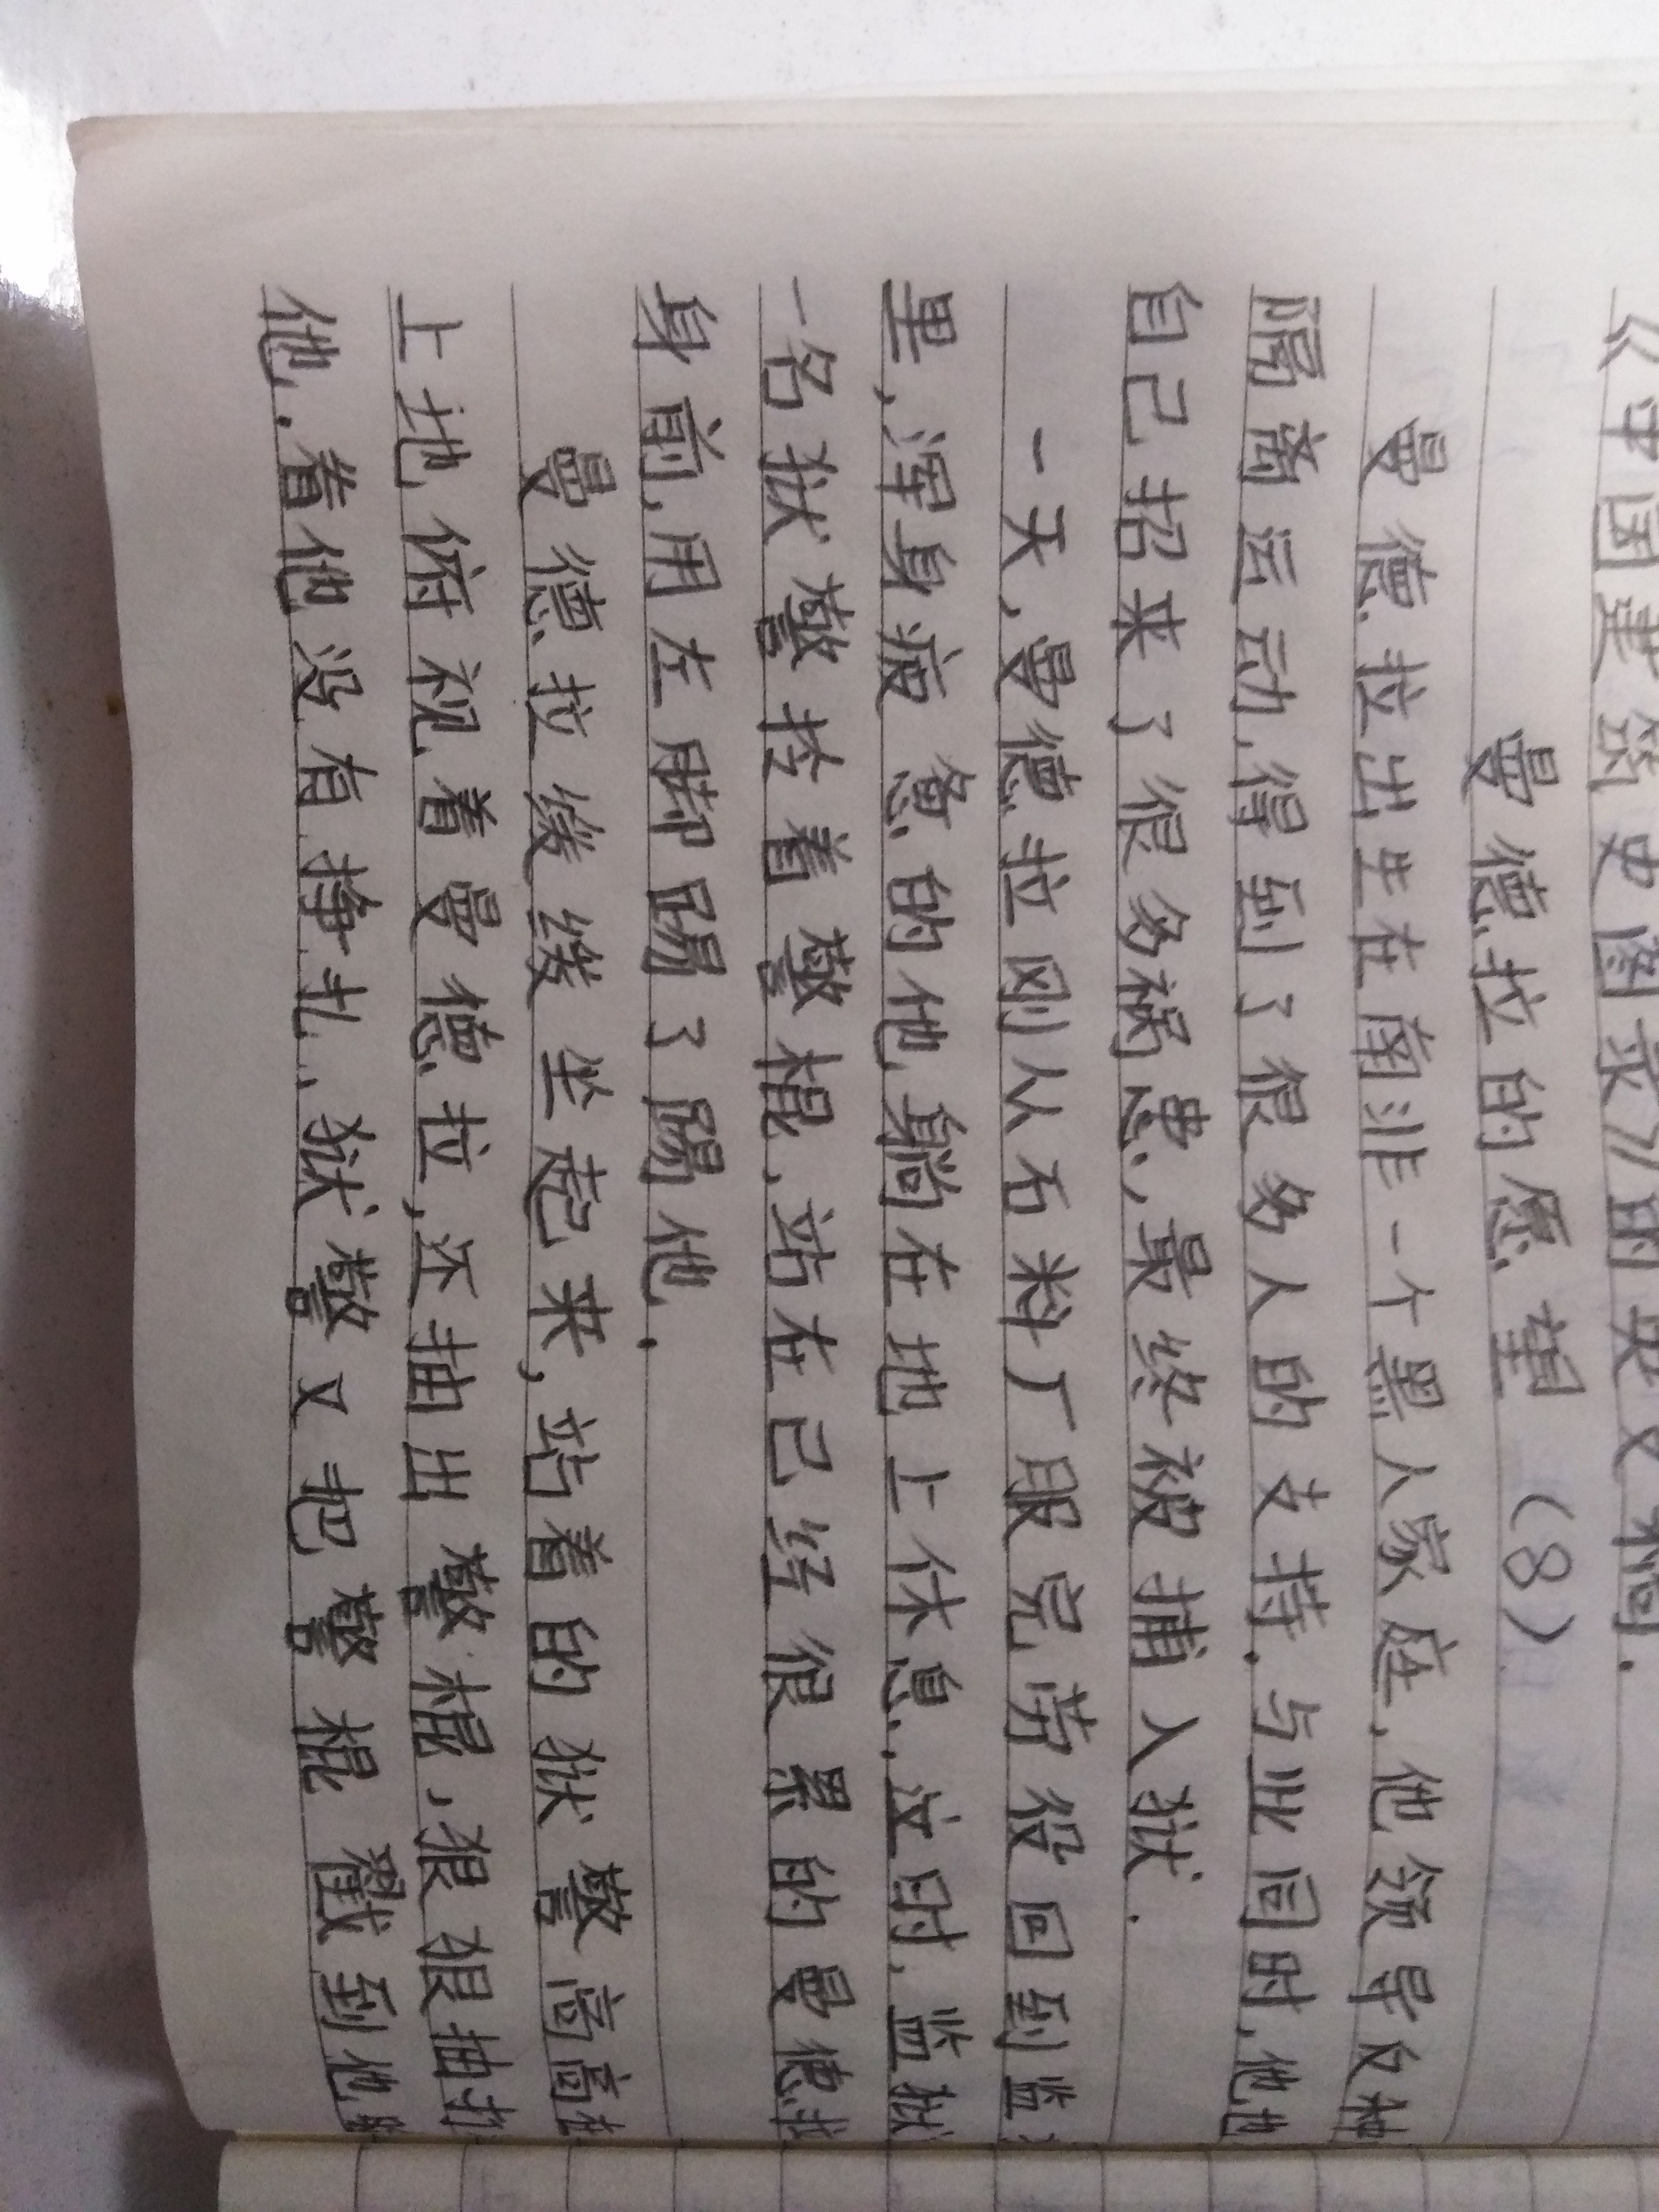 《中国建筑史图录》的英文稿.
曼德拉的愿望 (8)
曼德拉出生在南非一个黑人家庭,他领导反种
隔离运动,得到了很多人的支持.与此同时,他也
自己招来了很多祸患,最终被捕入狱.
一天,曼德拉刚从石料厂服完劳役回到监
里,浑身疲惫的他,躺在地上休息,这时,监狱
一名狱警拎着警棍,站在已经很累的曼德拉
身前,用左脚踢了踢他.
曼德拉缓缓坐起来,站着的狱警高高在
上地俯视着曼德拉,还抽出警棍,狠狠抽打
他.着他没有挣扎,狱警又把警棍戳到他